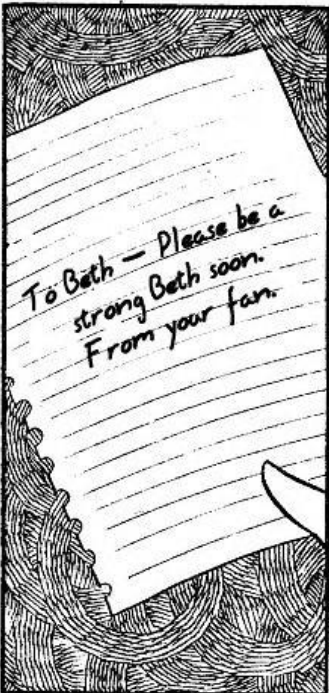 To Beth — Please be a
strong Beth soon.
From your fan.